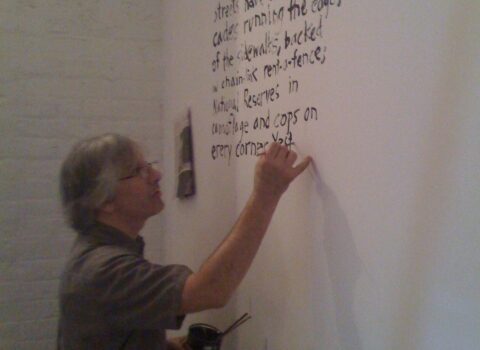 streets have
cades running the edges
of the sidewalks, backed
w chain-link rent-a-fence;
National Reserves in
camouflage and cops on
every corner. Yet